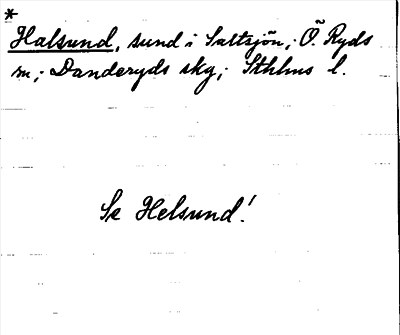 *
Halsund, sund i Saltsjön; Ö. Ryds
sn; Danderyds skg; Sthlms l.
Se Helsund!